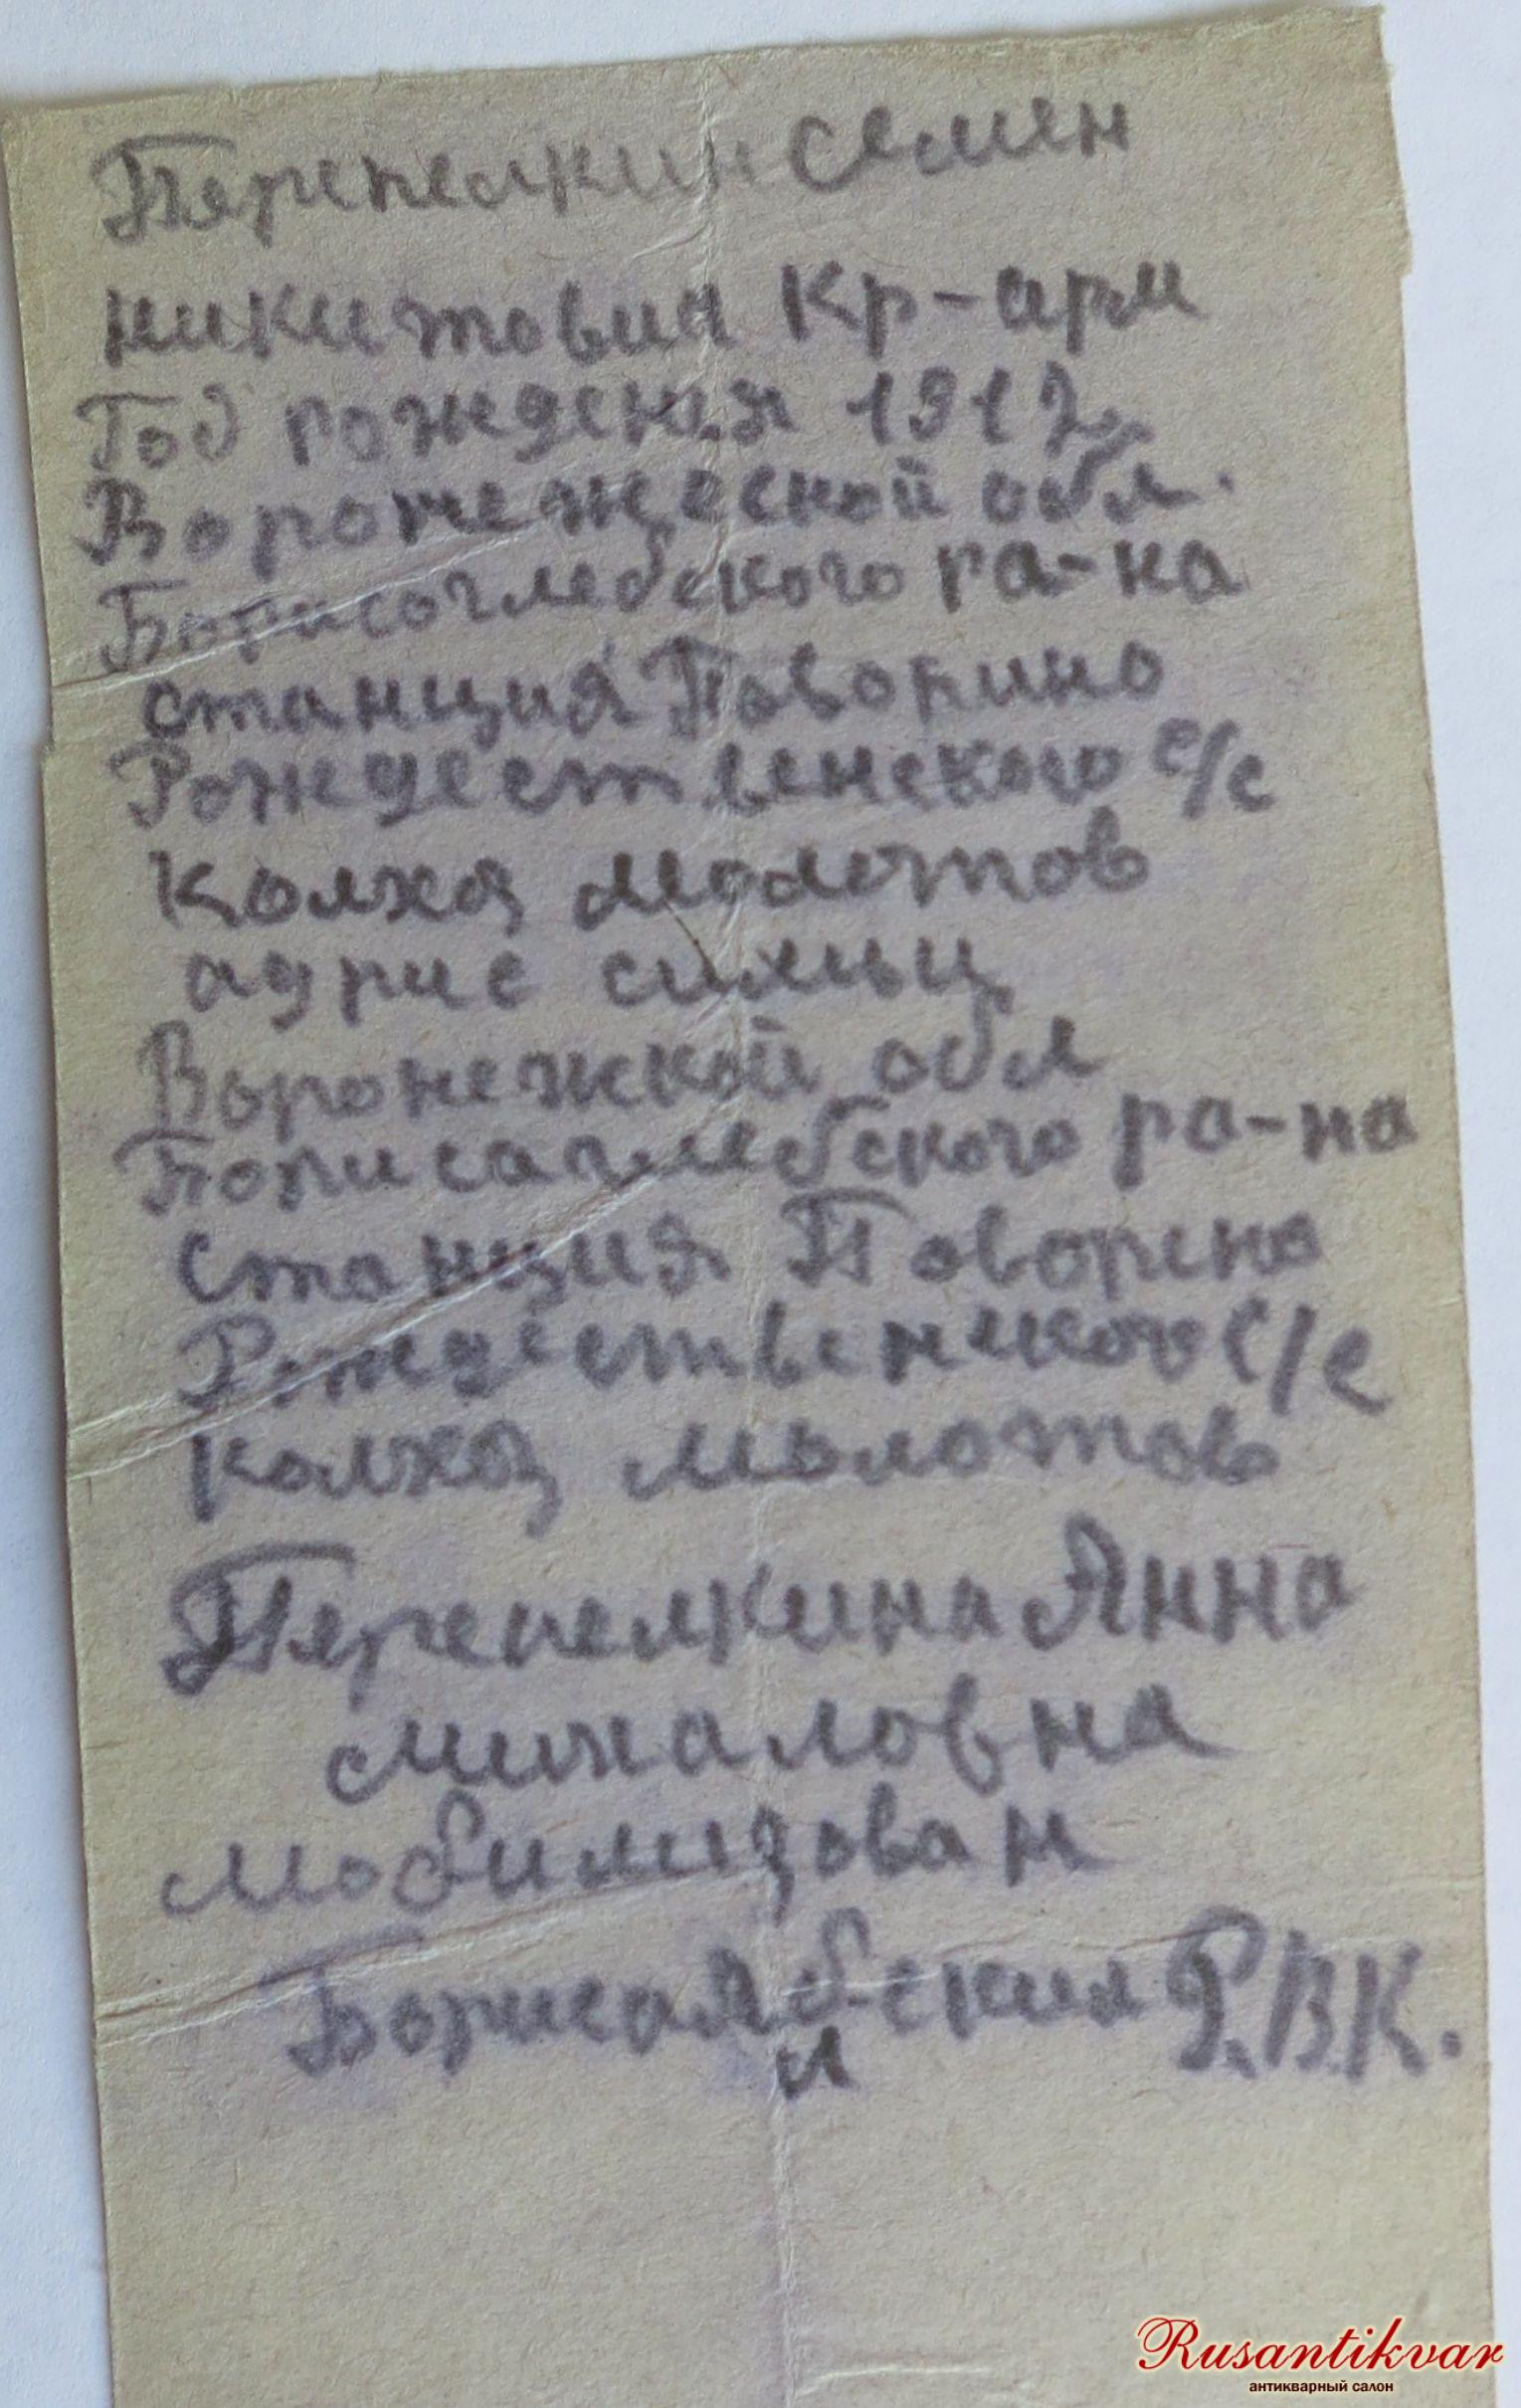 Перепелкин Семен
никитович Кр-арм
Год рождения 1917
Воронежеской обл.
Борисоглебского ра-на
станция Поворино
Рождественского с/с
Колхоз Молотов
адрис симьи
Воронежкой обл
Борисаглебского ра-на
станция Поворено
Рождественского с/с
Колхоз молотов
Перепелкина Анна
михаловна
мобилизован
Борисаглебским Р.В.К.
Rusantikvar
антикварный салон